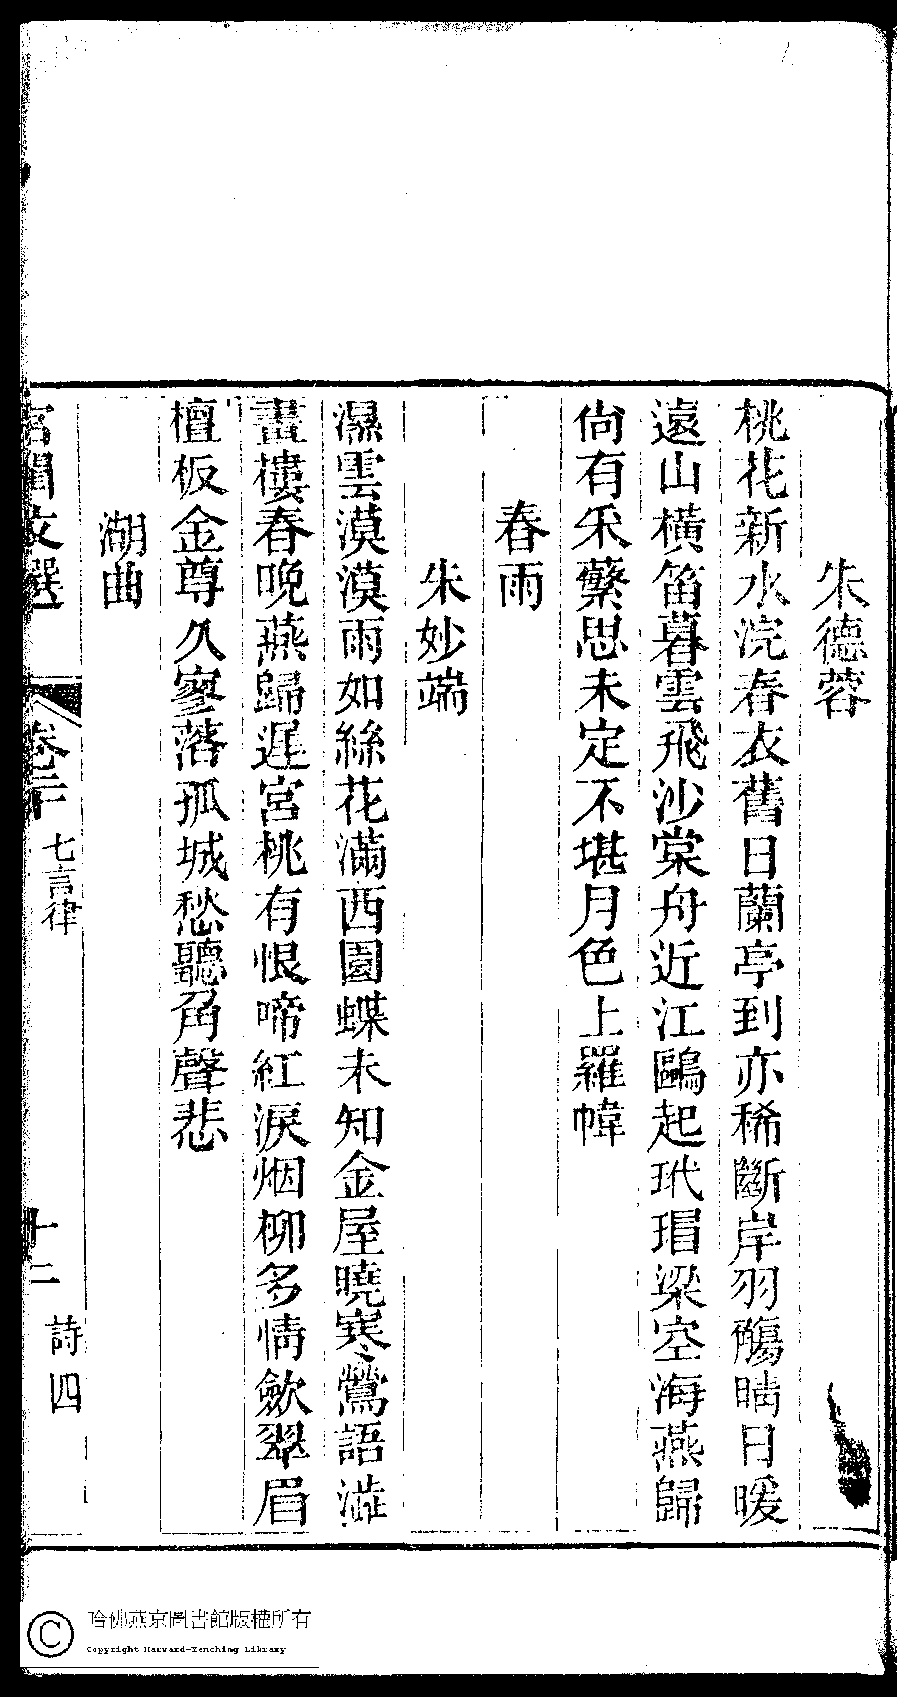 朱德蓉
桃花新水浣春衣舊日蘭亭到亦稀斷岸羽觴晴日暖
遠山橫笛暮雲飛沙棠舟近江鷗起玳瑁梁空海燕歸
尙有采蘩思未定不堪月色上羅幃
春雨
朱妙端
濕雲漠漠雨如絲花滿西園蝶未知金屋曉寒鶯語澁
畫樓春晚燕歸遲宮桃有恨啼紅淚烟柳多情歛翠眉
檀板金尊久寥落孤城愁聽角聲悲
湖曲
宮閨文選
卷二十
七言律
十二
詩四
哈佛燕京圖書館版權所有
Copyright Harvard-Yenching Library